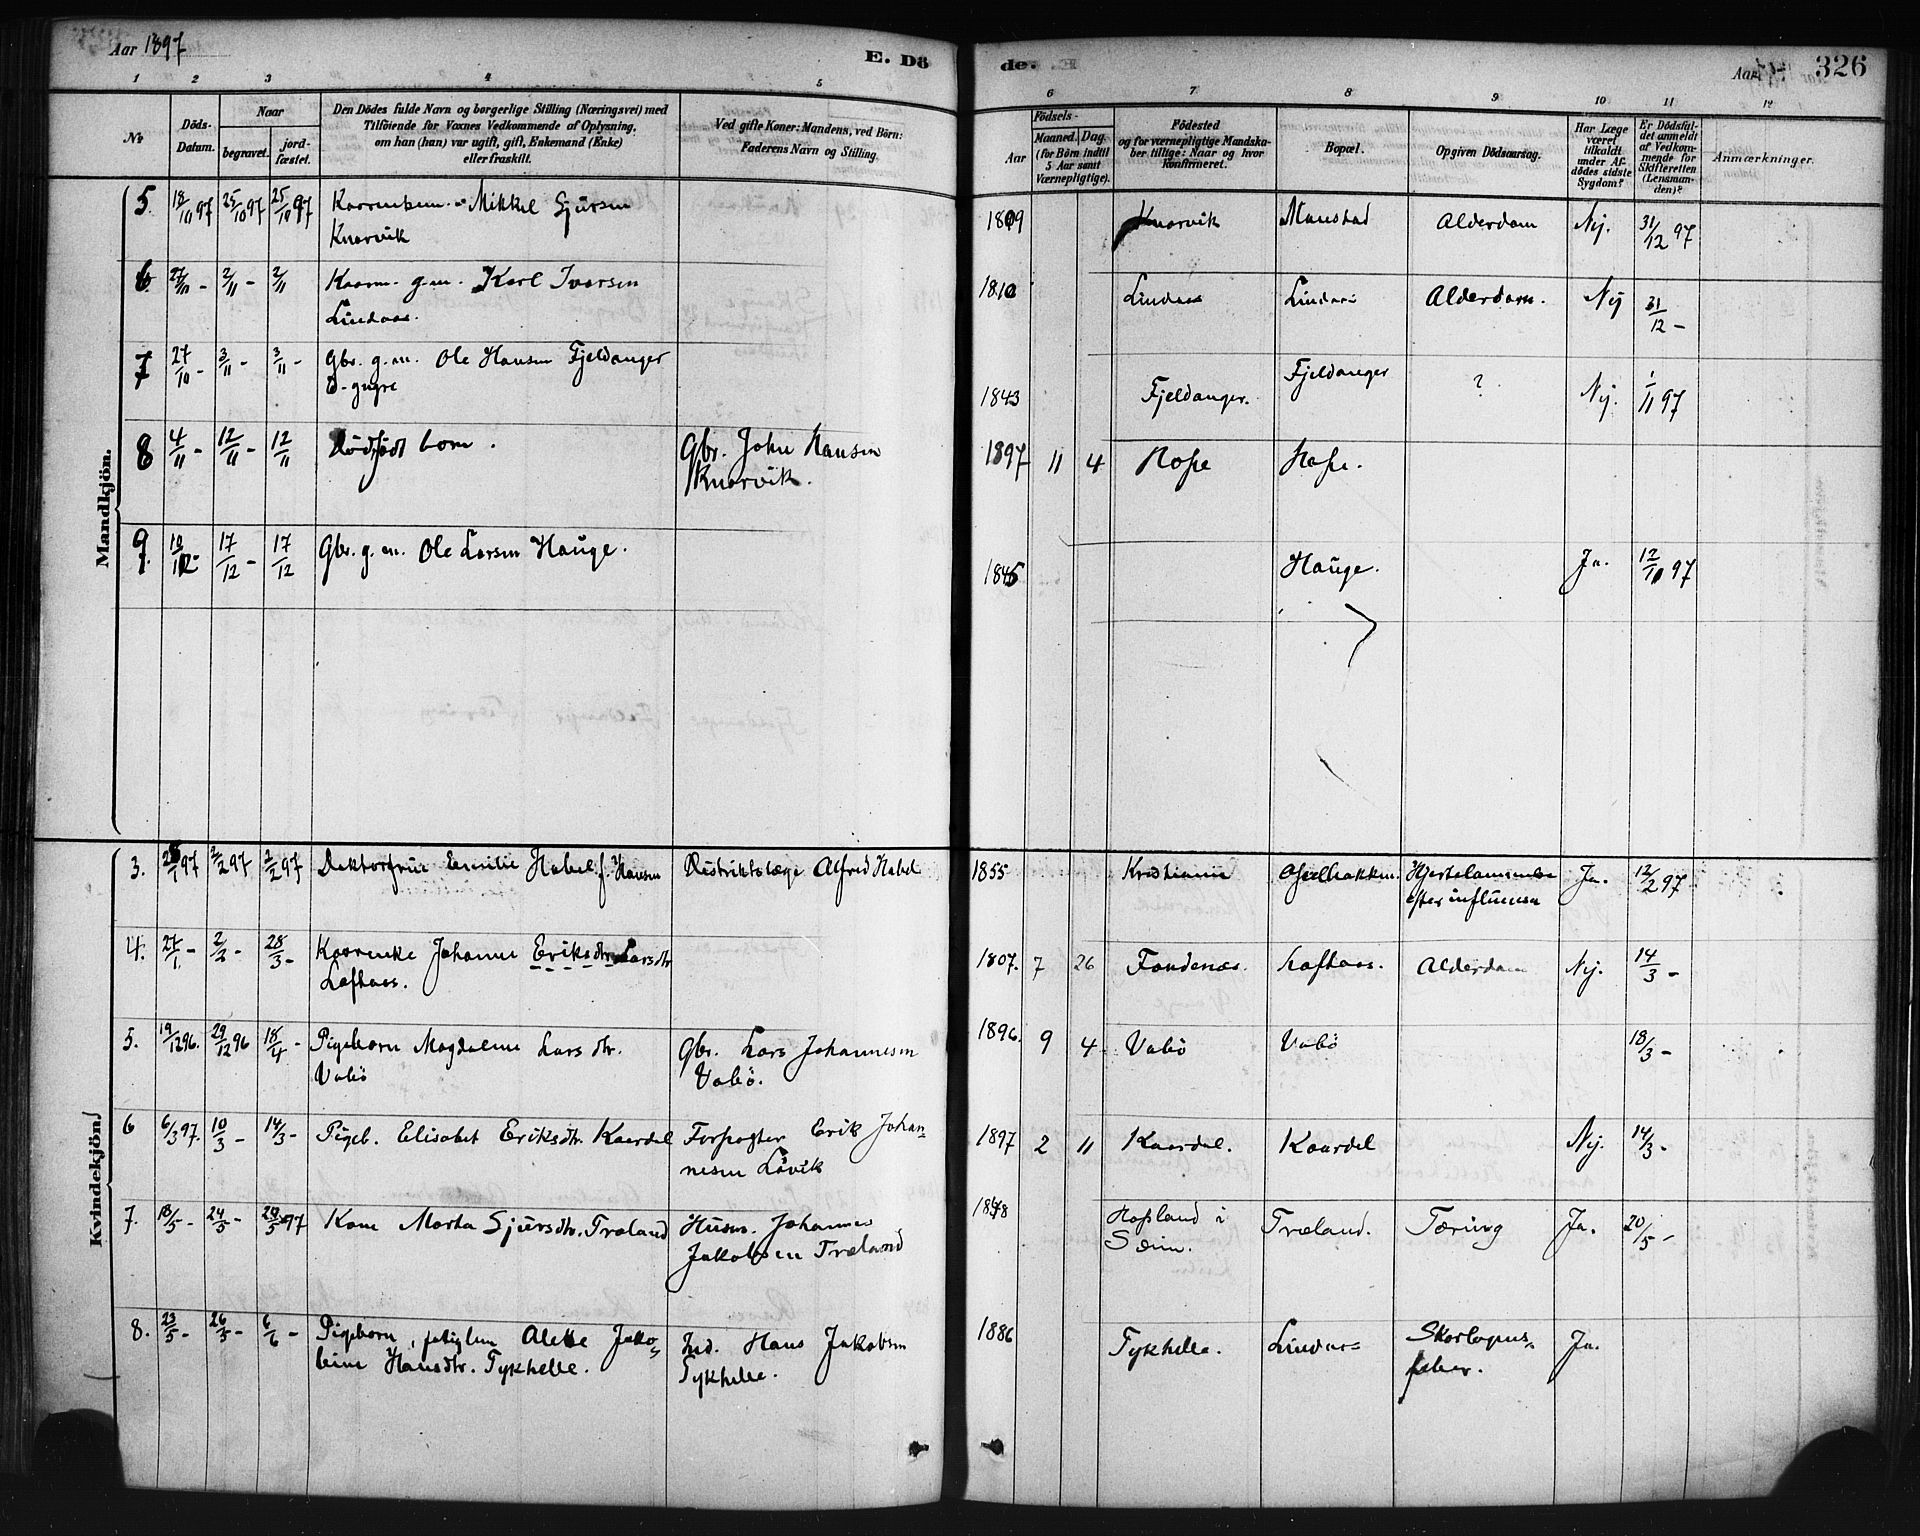 Aar 1897
E. Dö
de.
Aar
326
1 2 3 4 5 6 7 8 9 10 11 12
No
Döds-Datum.
Naar
begravet.
jord-fæstet.
Den Dödes fulde Navn og borgerlige Stilling (Næringsvei) med
Tilföiende for Voxnes Vedkommende af Oplysning,
om han (hun) var ugift, gift, Enkemand (Enke)
eller fraskilt.
Ved gifte Koner: Mandens, ved Börn:
Faderens Navn og Stilling.
Födsels-
Aar
Maaned. Dag.
(for Börn indtil
5 Aar samt
Værnepligtige).
Födested
og for værnepligtige Mandska-
ber tillige: Naar og hvor
konfirmeret.
Bopæl.
Opgiven Dödsaarsag.
Har Læge
været
tilkaldt
under Af-
dödes sidste
Sygdom?
Er Dödsfal-
det anmeldt
af Vedkom-
mende for
Skifteretten
(Lensman-
den)?
Anmærkninger.
Mandkjön.
5. 18/10 97 25/10 97 25/10 97 Mikkel Sjursen
Knarvik
1809 Knarvik Monstad Alderdom Nej. 31/12 97
6. 27/10 - 2/11 - 2/11 Kaarm. g.m. Karl Iversen
Lindaas.
1810 Lindaas Lindaas Alderdom. Nej 31/12 -
7 27/10 - 3/11 - 3/11 Gbr. g.m. Ole Hansen Fjeldanger
1843 Fjeldanger. Fjeldanger ? Nej. 1/11 97
8 4/11 - 12/11 - 12/11 Dödfödt barn. Gbr. John Hansen
Knarvik.
1897 11 4 Hope Hope.
9. 10/12 - 17/12 - 17/12 Gbr. g.m. Ole Larsen Hauge.
Hauge. Ja. 97
Kvindekjön.
3. 97 2/2 97 2/2 97 Doktorfrue Emilie Habel f. Hansen Distriktslæge Alfred Habel
1855 Kristiania Hjertelammelse Ja. 12/2 97
efter influensa
4. 27/1 - 2/2 - 28/3 - Kaarenke Johanne Eriksdtr Larsdtr
Loftaas.
1807. 7 26 Fondenæs. Loftaas. Alderdom Nej. 14/3 -
5. 19/12 96. 29/12 96 18/4 - Pigebarn Magdalene Larsdtr. Gbr. Lars Johannesen
Vabö Vabö.
1896. 9 4 Vabö Vabö 18/3 -
6 6/3 97. 10/3 - 14/3 - Pigeb. Elisabet Eriksdtr. Kaardal Forpagter Erik Johan-
nesen Lövik
1897 2 11 Kaardal. Kaardal Nej. 14/3 -
7. 18/5 - 24/5 - 97 Kone Marta Sjursdtr. Træland Husm. Johannes
Jakobsen Træland
Hopland i Træland. Tæring Ja. 20/5 -
Seim.
8. 23/5 - 26/5 - 6/6 - Pigebarn, Alette Jako-
bine Hansdtr. Tykhelle. Ind. Hans Jakobsen
Tykhelle.
1886 Tykhelle. Lindaas Skarlagens- Ja.
feber.